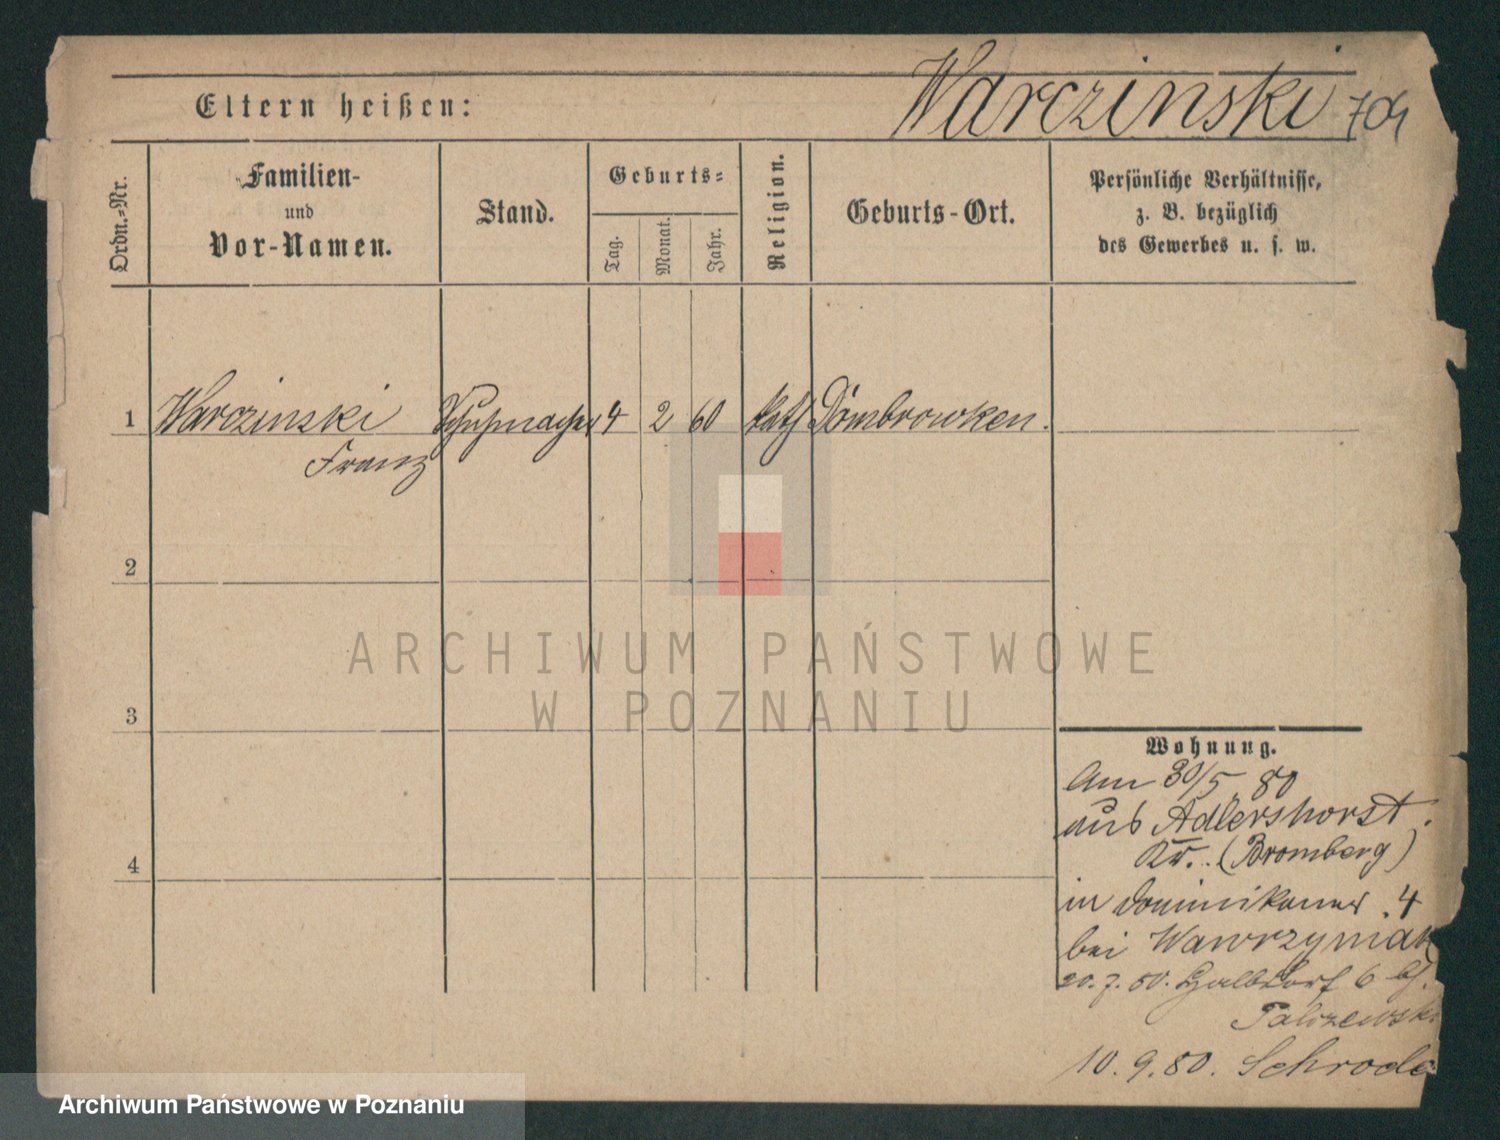 Warczinski 704
Eltern heißen:
Ordn.=Nr.
Familien-
und
Vor-Namen.
Stand.
Geburts=
Tag.
Monat.
Jahr.
Religion.
Geburts-Ort.
Persönliche Verhältnisse,
z. B. bezüglich
des Gewerbes u. s. w.
1 Warczinski Schuhmacher 4 2 60 kath Dombrowken.
Franz
2
3
4
ARCHIWUM PAŃSTWOWE
W POZNANIU
Wohnung.
Am 30/5 80
aus Adlershorst.
Kr. (Bromberg)
in Dominikaner. 4
bei Wawrzyniak
20. 7. 80. Halbdorf 6 bf.
10. 9. 80. Schroda
Archiwum Państwowe w Poznaniu